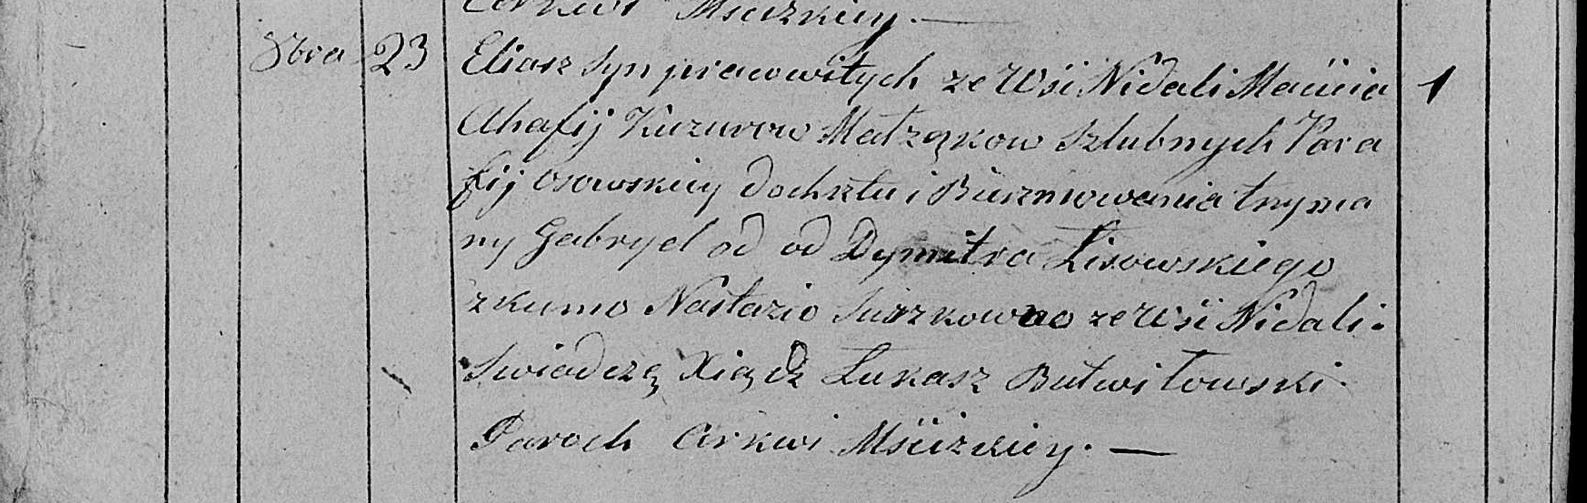 Cerkwi Mścizkiey. —
8bra 23 Eliasz Syn pracowitych ze Wsi Nidali Macieia 1
Ahafij Kuzurow Małżąkow Szlubnych Para
fij Osowskiey do chrztu i Bierzmowania trzyma
ny Gabryel od od Dymitra Lisowskiego
z kumo Nastazio Suszkowno ze Wsi Nidali.
Swiadczę Xiądz Łukasz Butwiłowski
Paroch Cerkwi Mścizkiey. —